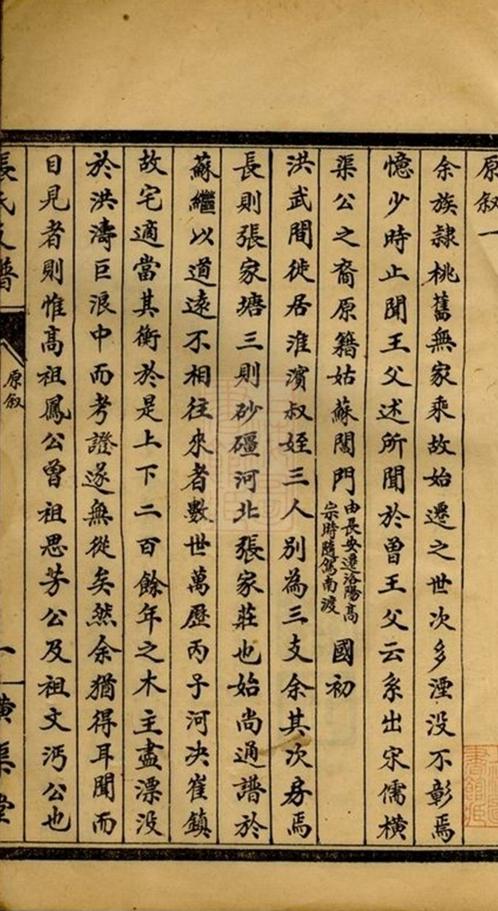 原叙一
余族隷桃舊無家乘故始遷之世次多湮没不彰焉
憶少時止聞王父述所聞於曾王父云系出宋儒橫
渠公之裔原籍姑蘇閶門由長安遷洛陽高宗時隨駕南渡國初
洪武間徙居淮濱叔姪三人別為三支余其次房焉
長則張家塘三則砂礓河北張家莊也始尚通譜於
蘇繼以道遠不相往來者數世萬歷丙子河决崔鎮
故宅適當其衡於是上下二百餘年之木主盡漂没
於洪濤巨浪中而考證遂無從矣然余猶得耳聞而
目見者則惟高祖鳳公曾祖思芳公及祖文沔公也
張氏支譜
原叙
一
橫渠堂